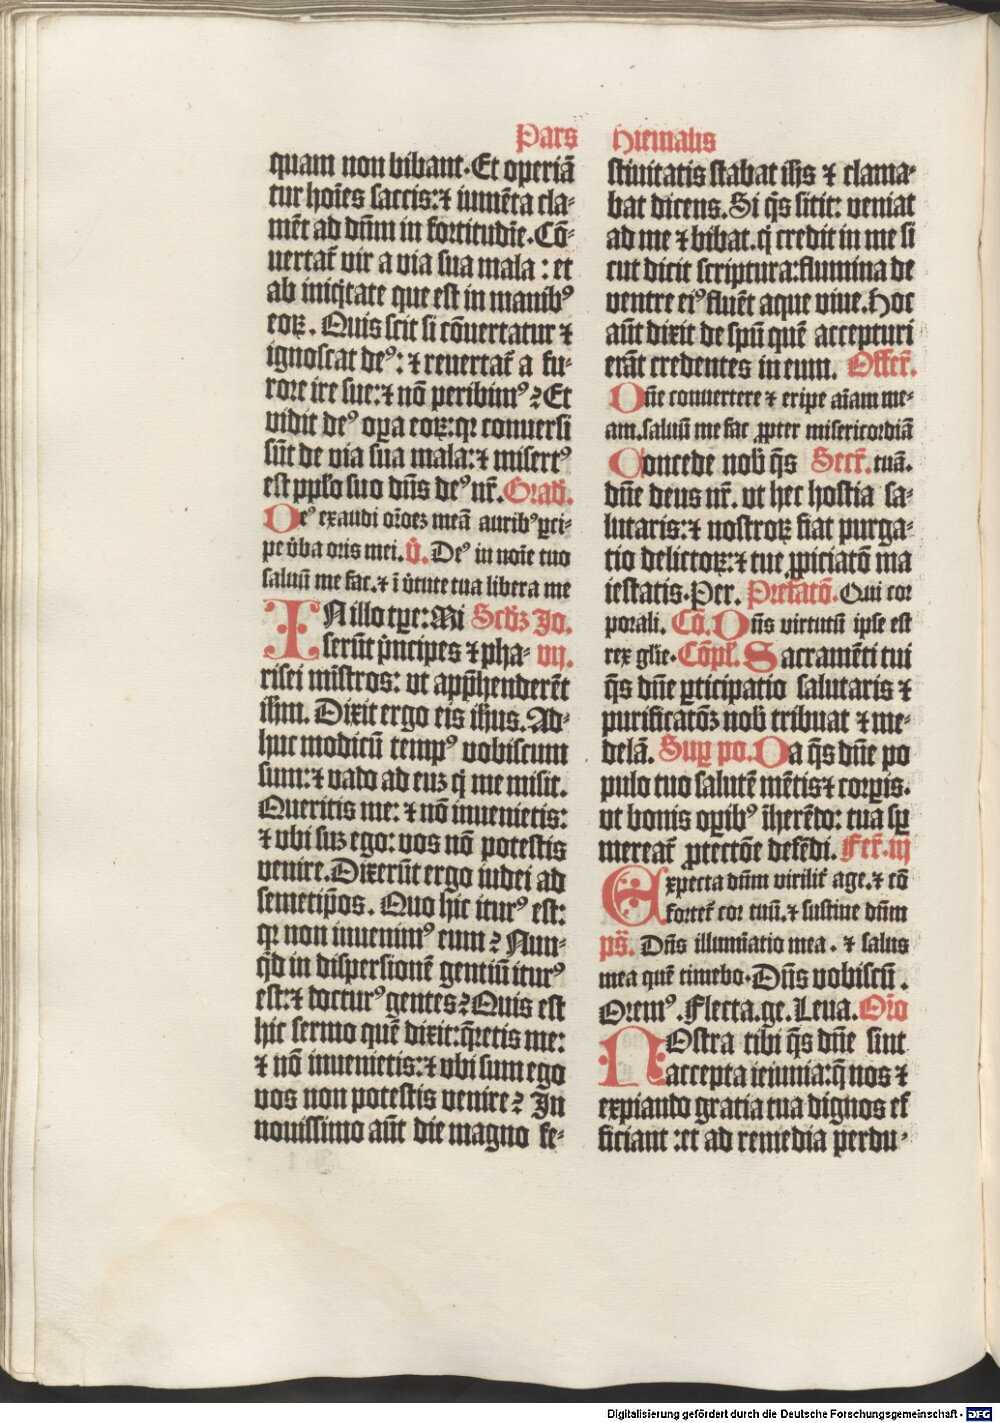 Pars Hiemalis
quam non bibant. Et operiā
tur hoīes saccis: ⁊ iumēta cla-
mēt ad dn̄m in fortitudīe. Cō-
uertat̄ vir a via sua mala : et
ab iniq̇tate que est in manibꝰ
eoꝝ. Quis scit si cōuertatur ⁊
ignoscat deꝰ: ⁊ reuertat̄ a fu-
rore ire sue: ⁊ nō peribimꝰ? Et
vidit deꝰ oꝑa eoꝝ: qꝛ conuersi
sūt de via sua mala: ⁊ misertꝰ
est pplo suo dn̄s deꝰ nr̄. Grad̄.
Deꝰ exaudi oīoeꝫ meā auribꝰ ꝑci-
pe v̇ba oris mei. v̇. Deꝰ in noīe tuo
saluū me fac. ⁊ ī v̇tute tua libera me
IN illo tꝑe: Mi Scd̄ꝫ Jo.
serūt pͥncipes ⁊ pha- vij.
risei mīstros: vt app̄henderēt
ih̄m. Dixit ergo eis ih̄us. Ad-
huc modicū tempꝰ vobiscum
sum: ⁊ vado ad euꝫ q̇ me misit.
Queritis me: ⁊ nō inuenietis:
⁊ vbi suꝫ ego: vos nō potestis
venire. Dixerūt ergo iudei ad
semetip̄os. Quo hic iturꝰ est:
qꝛ non inuenimꝰ eum? Nun-
q̇d in dispersionē gentiū iturꝰ
est: ⁊ docturꝰ gentes? Quis est
hic sermo quē dixit: q̄retis me:
⁊ nō inuenietis: ⁊ vbi sum ego
vos non potestis venire? In
nouissimo aūt die magno fe-
stiuitatis stabat ih̄s ⁊ clama-
bat dicens. Si q̇s sitit: veniat
ad me ⁊ bibat. q̇ credit in me si
cut dicit scriptura: flumina de
ventre eiꝰ fluēt aque viue. Hoc
aūt dixit de spū quē accepturi
erāt credentes in eum. Offert̄.
Dn̄e conuertere ⁊ eripe aīam me-
am. saluū me fac ꝓpter misericordiā
Concede nob̄ q̄s Secr̄. tuā.
dn̄e deus nr̄. vt hec hostia sa-
lutaris: ⁊ nostroꝝ fiat purga-
tio delictoꝝ: ⁊ tue ꝓpiciatōi ma
iestatis. Per. Prefatō. Qui cor
porali. Cō. Dn̄s virtutū ipse est
rex glīe. Cōpl̄. Sacramēti tui
q̄s dn̄e ꝑticipatio salutaris ⁊
purificatōꝫ nob̄ tribuat ⁊ me-
delā. Suꝑ po. Da q̄s dn̄e po
pulo tuo salutē mētis ⁊ corꝑis.
vt bonis oꝑibꝰ īherēdo: tua sꝑ
mereat̄ ꝓtectōe defēdi. Fer̄. iij
Expecta dn̄m virilit̄ age. ⁊ cō
fortet̄ cor tuū. ⁊ sustine dn̄m
ps̄. Dn̄s illumīatio mea. ⁊ salus
mea quē timebo. Dn̄s vobiscū.
Oremꝰ. Flecta. ge. Leua. Or̄o
NOstra tibi q̄s dn̄e sint
accepta ieiunia: q̄ nos ⁊
expiando gratia tua dignos ef
ficiant : et ad remedia perdu-
Digitalisierung gefördert durch die Deutsche Forschungsgemeinschaft - DFG